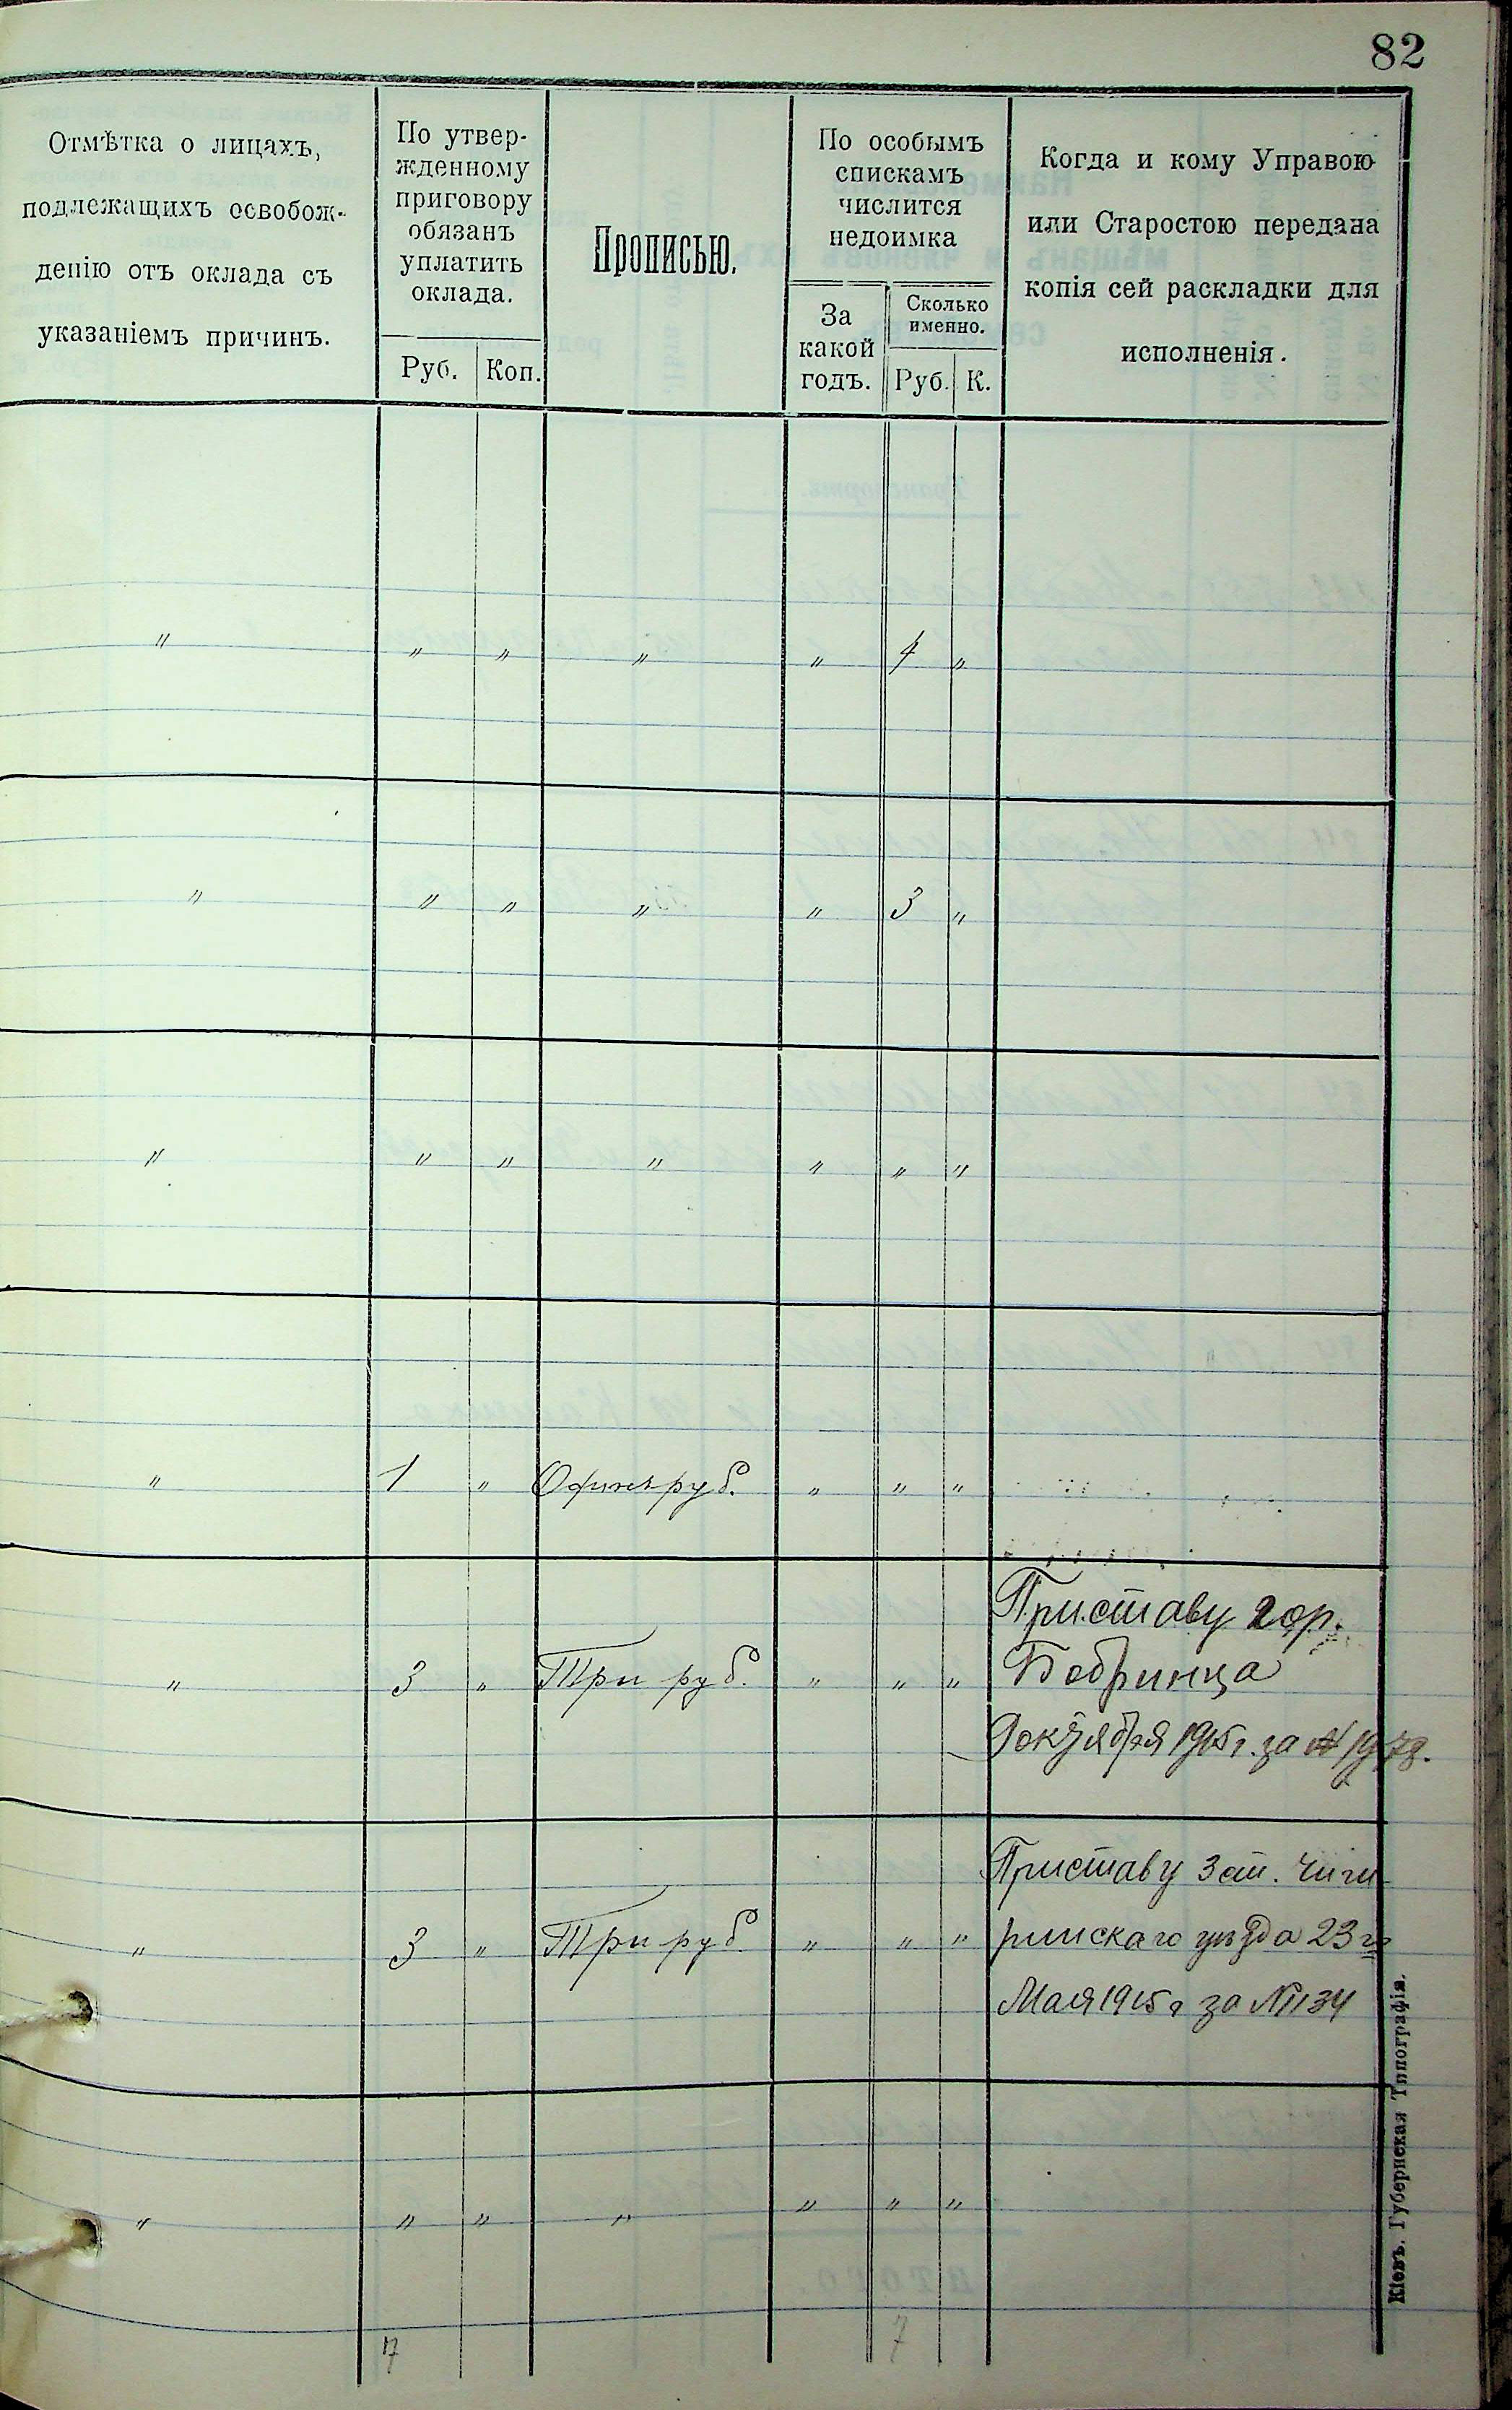 82
Отмѣтка о лицахъ,
подлежащихъ освобож-
денію отъ оклада съ
указаніемъ причинъ.
По утвер-
жденному
приговору
обязанъ
уплатить
оклада.
Руб. Коп.
Прописью.
По особымъ
спискамъ
числится
недоимка
За
какой
годъ.
Сколько
именно.
Руб. К.
Когда и кому Управою
или Старостою передана
копія сей раскладки для
исполненія.
" " " " " 4 "
" " " " " 3 "
" " " " " " "
" 1 " Одинъ руб. " " "
Приставу гор.
" 3 " Три руб. " " " Бобринца
9 октября 1915 г. за №
Приставу 3 ст. Чиги
" 3 " Три руб. " " " ринскаго уѣзда 23 го
Мая 1915 г за № 1134
" " " " " " "
7 7
Кіевъ. Губернская Типографія.